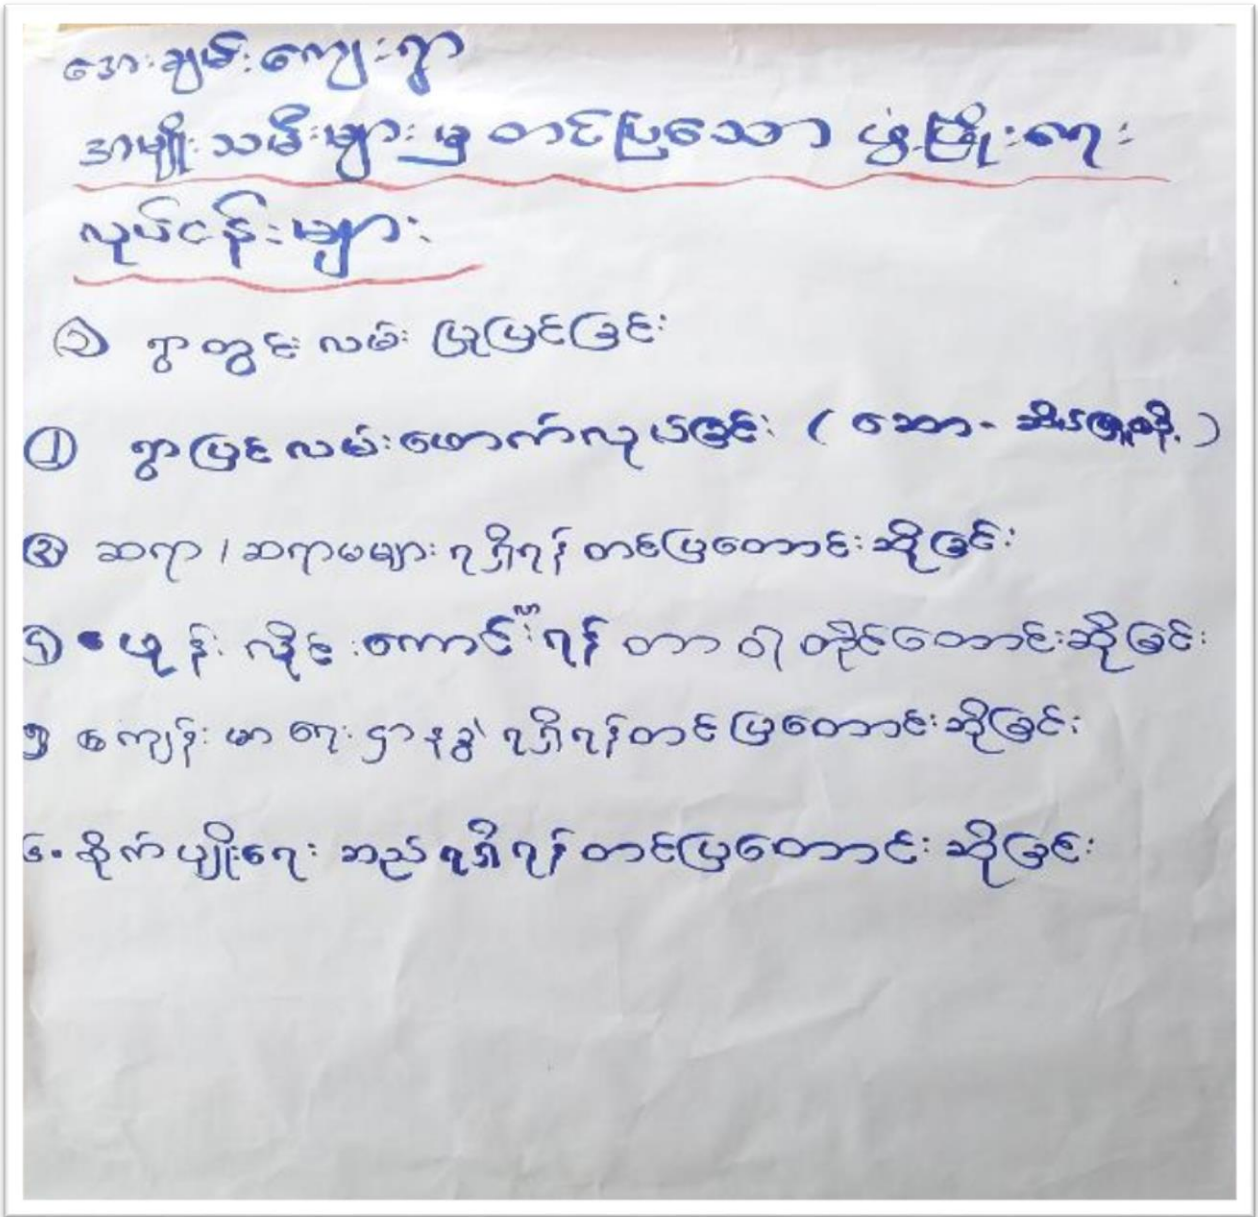 အေးချမ်းကျေးရွာ
အမျိုးသမီးများမှ တင်ပြသော ဖွံ့ဖြိုးရေး
လုပ်ငန်းများ
၁ ရွာတွင်းလမ်း ပြုပြင်ခြင်း
၂ ရွာပြင်လမ်းဖောက်လုပ်ခြင်း (
၃ ဆရာ / ဆရာမများ ရရှိရန် တင်ပြတောင်းဆိုခြင်း
၄ ဖုန်းလိုင်းကောင်းရန် တာဝါတိုင်တောင်းဆိုခြင်း
၅ ကျန်းမာရေးဌာနခွဲ ရရှိရန်တင်ပြတောင်းဆိုခြင်း
၆. စိုက်ပျိုးရေး ဆည်ရရှိရန်တင်ပြတောင်းဆိုခြင်း